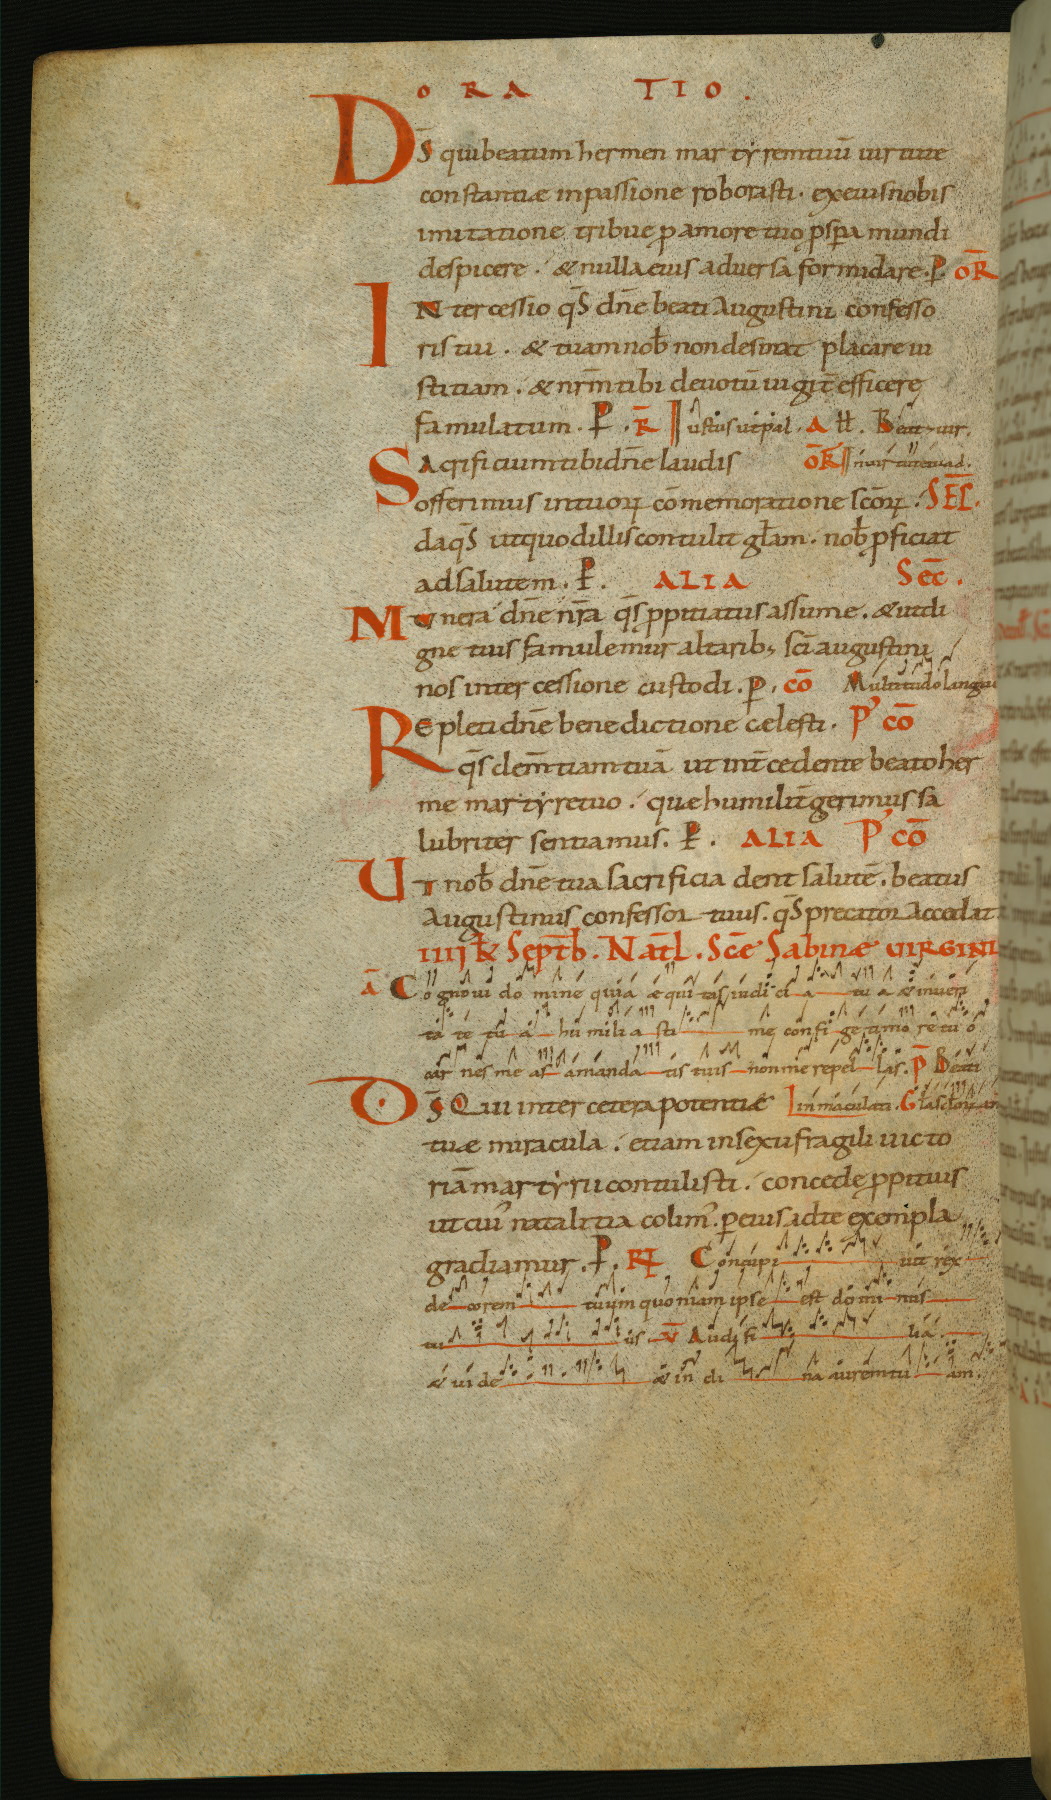 ORATIO.
DS̄ qui beatum hermen martyrem tuū uirtute
constantiæ in passione roborasti. ex eius nobis
imitatione tribue p amore tuo pspa mundi
despicere. & nulla eius aduersa formidare. P. OR̄
INtercessio qS̄ dn̄e beati Augustini confesso
ris tui. & tuam nob̄ non desinat placare iu
stitiam. & nrm̄ tibi deuotū iugit̄ efficere
famulatum. P. R̄ Iustus ut pal. A ll. Beat uir.
SAcrificium tibi dn̄e laudis OR̄ In uirtute tua d.
offerimus in tuoꝝ cōmemoratione scōꝝ. SEC̄.
da qS̄ ut quod illis contulit gl̄am. nob̄ pficiat
ad salutem. P. ALIA Sec̄.
MUnera dn̄e nr̄a qs̄ ppitiatus assume. & ut di
gne tuis famulemur altarib; sci augustini
nos intercessione custodi. P. cō Multitudo languen
REpleti dn̄e benedictione celesti. P' cō
qs̄ clem̄tiam tuā ut int̄cedente beato her
me martyre tuo. que humilit̄ gerimus sa
lubriter sentiamus. P. ALIA P' cō
UT nob̄ dn̄e tua sacrificia dent salutē. beatus
Augustinus confessor tuus. qS̄ precator accedat
IIII k̄ Septb̄. Natl̄. Scē Sabinæ UIRGINI
ā Cognoui domine quia æquitas iudicia tua & in ueri
tate tua humiliasti me confige timore tuo
carnes meas a mandatis tuis non me repellas. P̄ Beati
DS̄ Qui inter cetera potentiæ Inmaculati. Gl̄a sclorum am
tuæ miracula. etiam in sexu fragili uicto
riā martyrii contulisti. concede ppitius
ut cui' natalitia colim'. p eius ad te exempla
gradiamur. P. R Concupiuit rex
decorem tuum quoniam ipse est dominus
tuus. V̄ Audi filia
& uide & inclina aurem tuam.